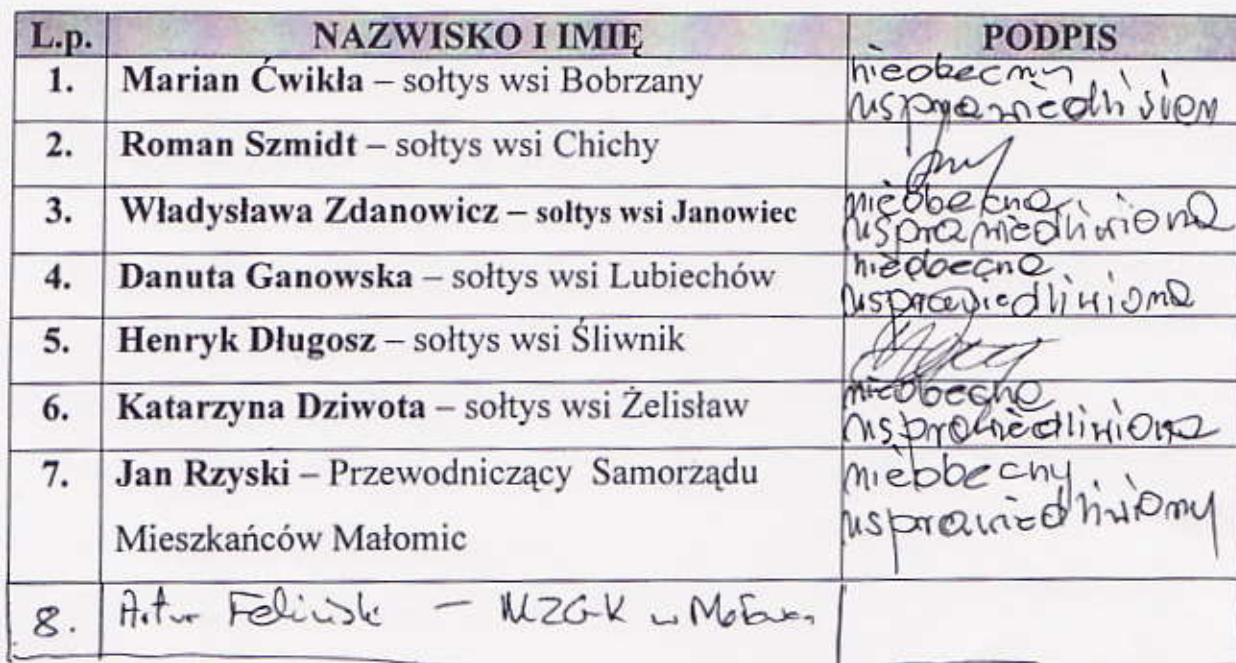 L.p. NAZWISKO I IMIĘ PODPIS
1. Marian Ćwikła – sołtys wsi Bobrzany nieobecny
usprawiedliwiony
2. Roman Szmidt – sołtys wsi Chichy
3. Władysława Zdanowicz – sołtys wsi Janowiec nieobecna
usprawiedliwiona
4. Danuta Ganowska – sołtys wsi Lubiechów nieobecna
usprawiedliwiona
5. Henryk Długosz – sołtys wsi Śliwnik
6. Katarzyna Dziwota – sołtys wsi Żelisław nieobecna
usprawiedliwiona
7. Jan Rzyski – Przewodniczący Samorządu nieobecny
Mieszkańców Małomic usprawiedliwiony
8. Artur Feliński – MZGK w